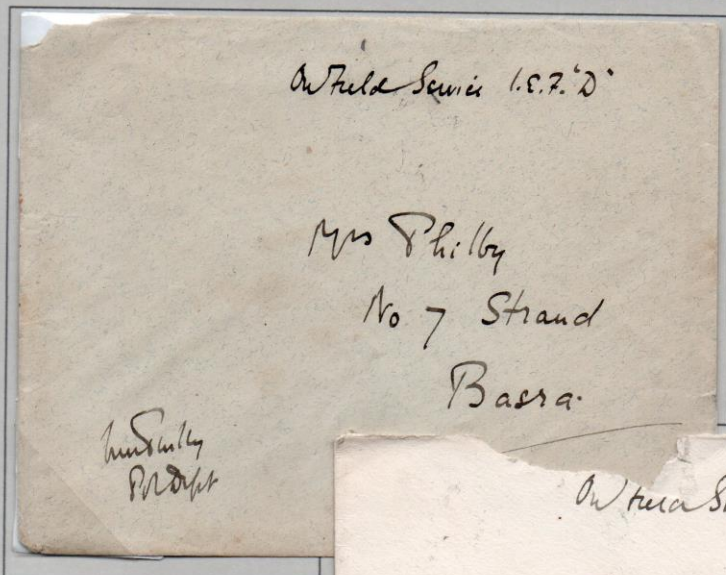 On Field Service I.E.F. "D"
Mrs Philby
No 7 Strand
Basra.
Philby
Pol Dept
On Field